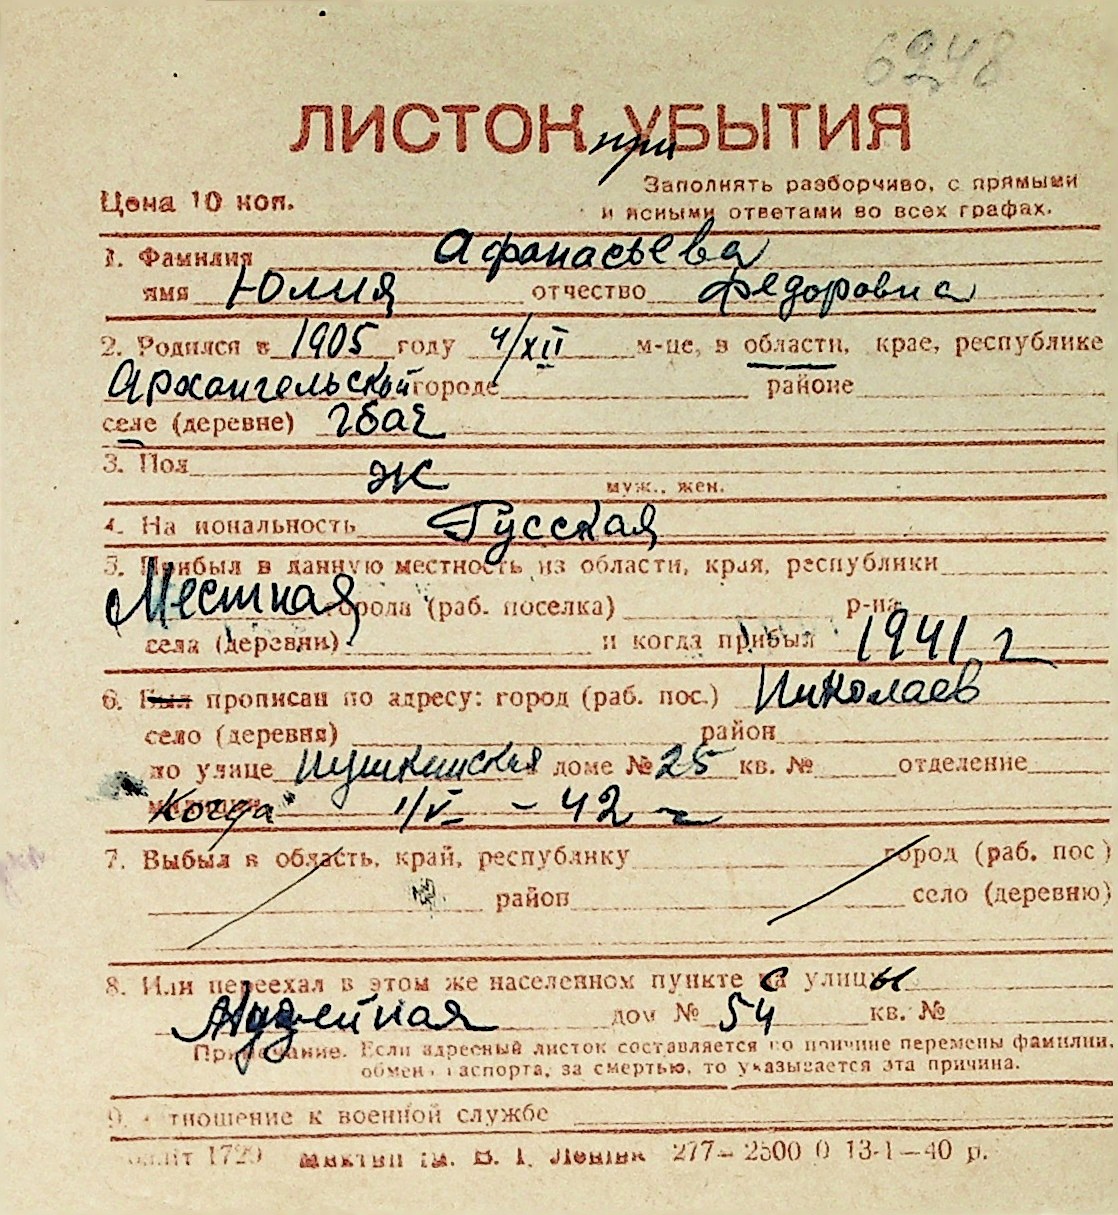 6948
ЛИСТОК УБЫТИЯ
при
Заполнять разборчиво, с прямыми
Цена 10 коп.
и ясными ответами во всех графах.
1. Фамилия Афанасьева
имя Юлия отчество Федоровна
2. Родился в 1905 году 4/XII м-це, в области, крае, республике
Архангельской городе районе
селе (деревне)
3. Пол ж
муж., жен.
4. На иональность Русская
5. Прибыл в данную местность из области, края, республики
Местная города (раб. поселка) р-на
села (деревни) и когда прибыл 1941 г
6. Был прописан по адресу: город (раб. пос.) Николаев
село (деревня) район
по улице Пушкинская доме № 25 кв. № отделение
милиции Когда 1/V - 42 г
7. Выбыл в область, край, республику город (раб. пос)
район село (деревню)
8. Или переехал в этом же населенном пункте с улицы
дом № 54 кв. №
Примечание. Если адресный листок составляется по причине перемены фамилии,
обмен паспорта, за смертью, то указывается эта причина.
9. тношение к военной службе
1729 277— 2500 0 13-1—40 р.